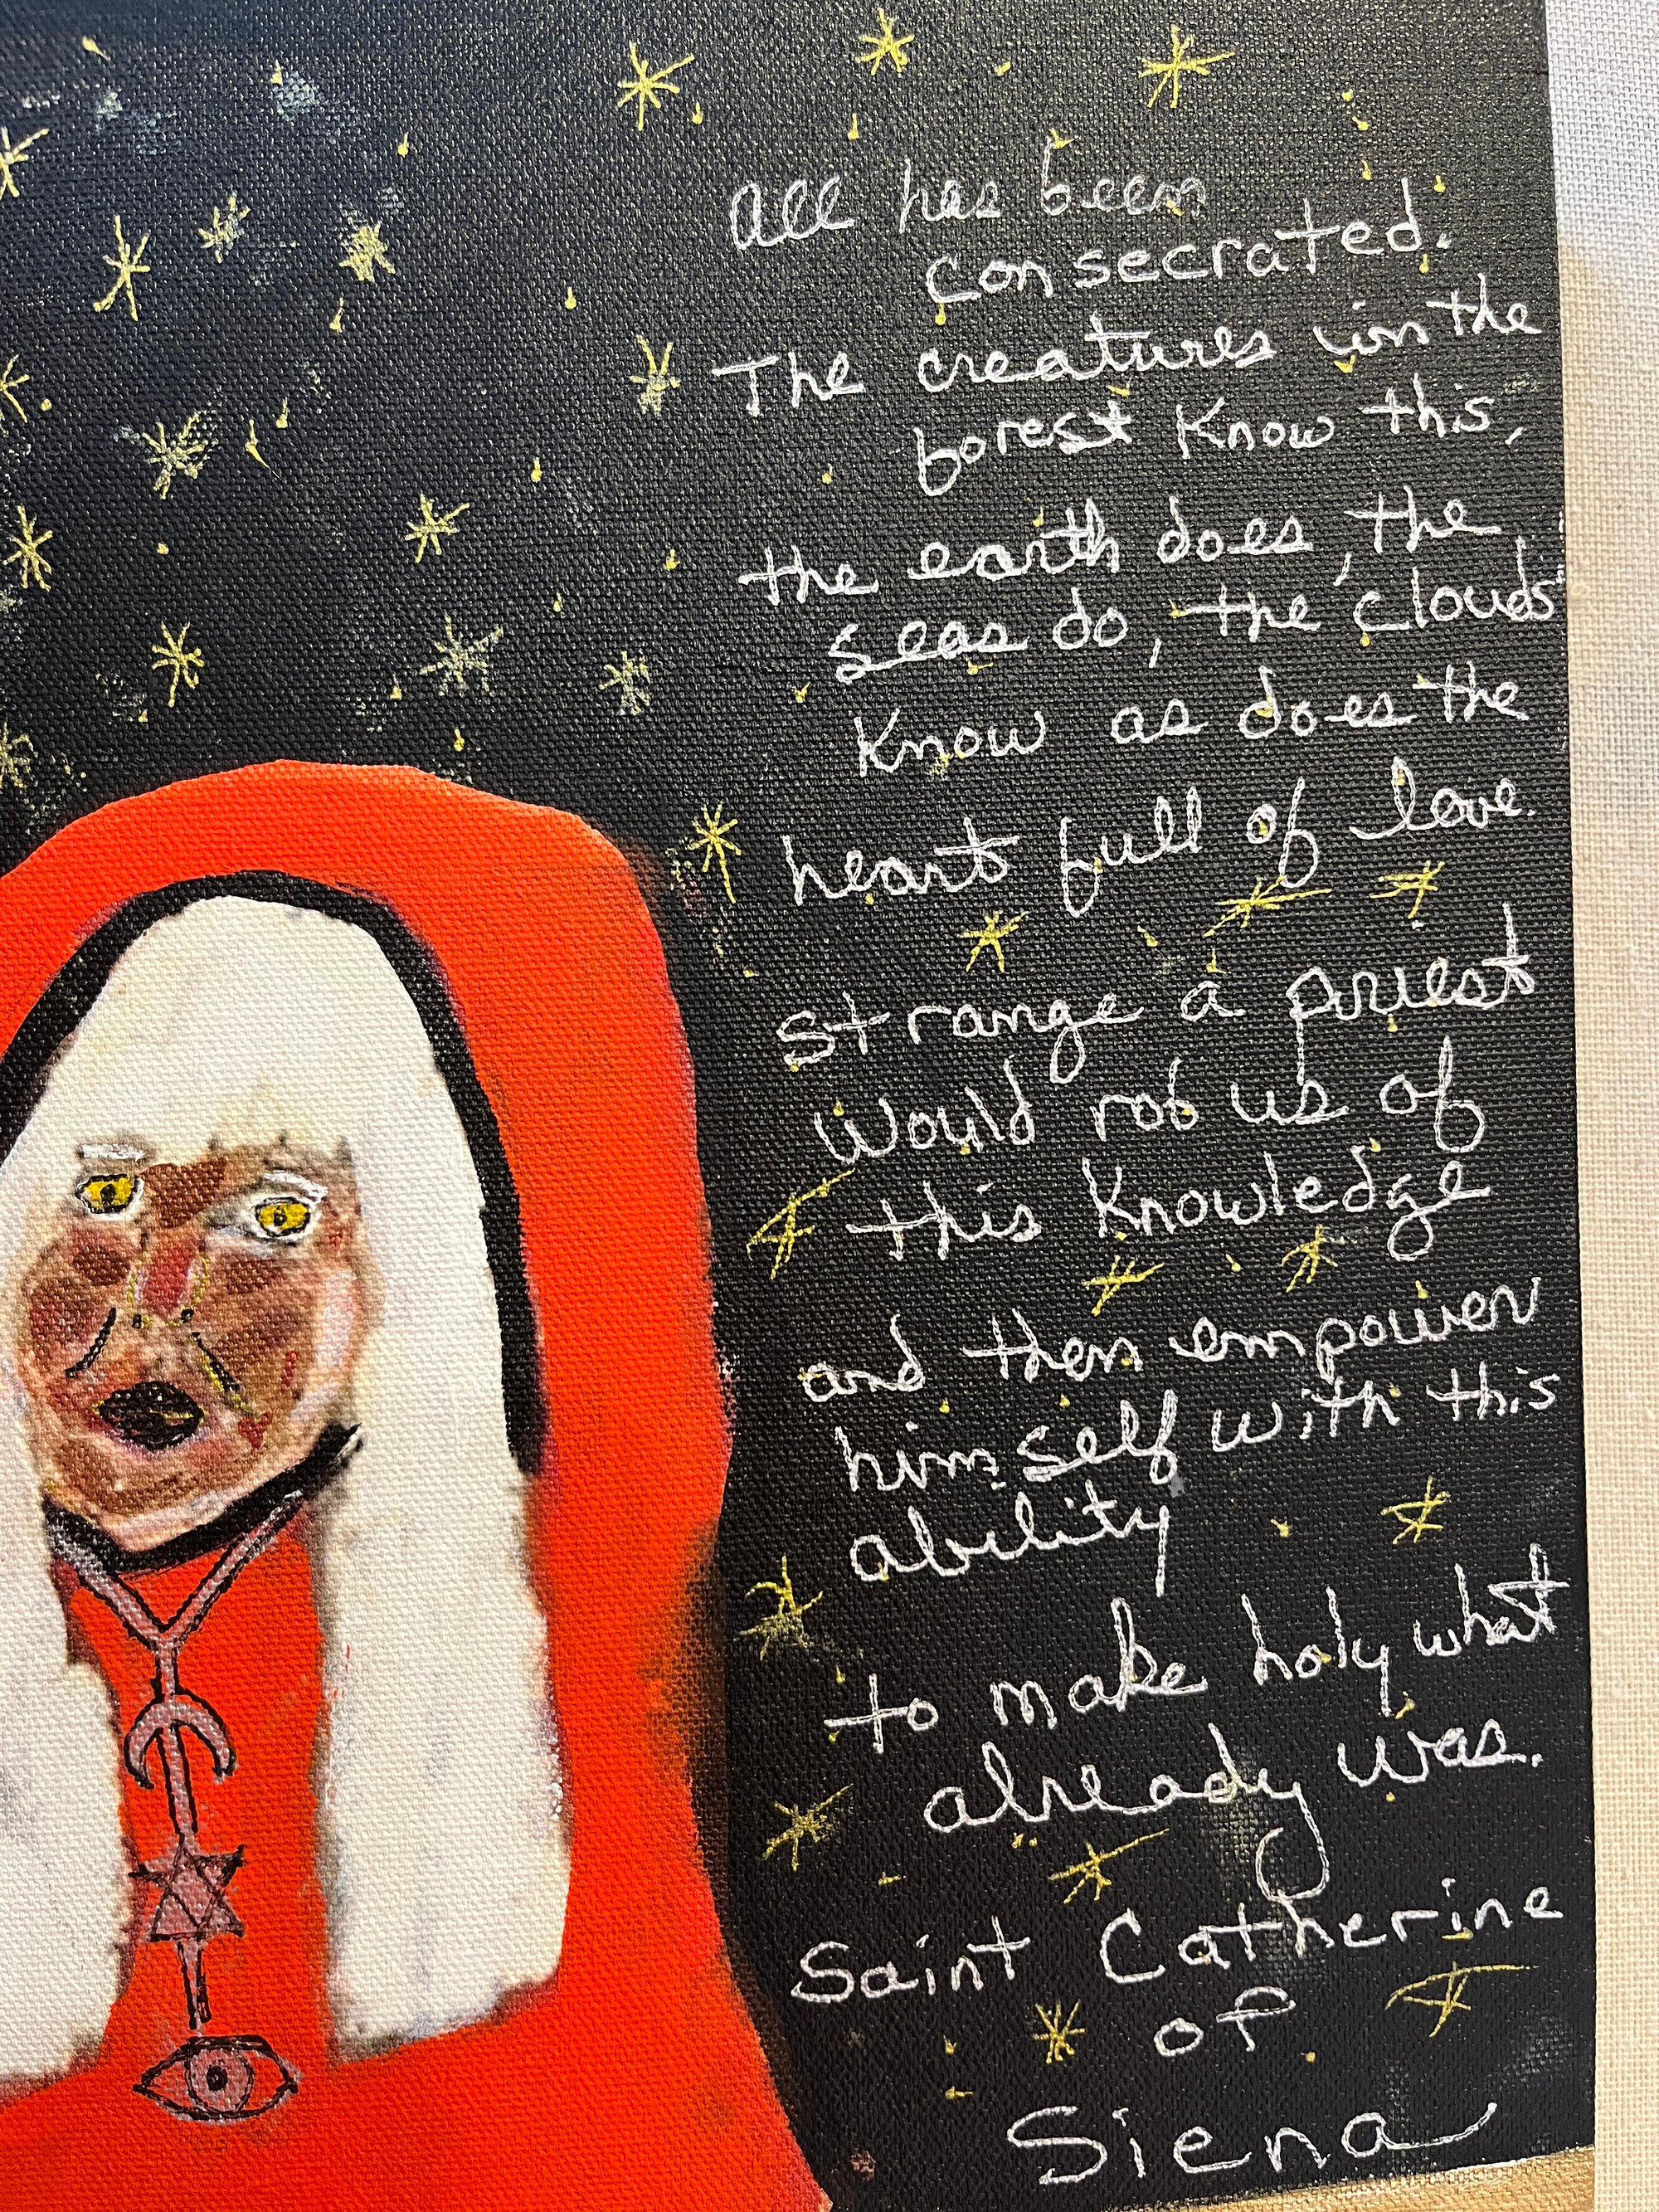 all has been
consecrated.
The creatures in the
forest know this,
the earth does, the
seas do, the clouds
know as does the
heart full of love.
strange a priest
would rob us of
this knowledge
and then empower
himself with this
ability
to make holy what
already was.
Saint Catherine
of
Siena